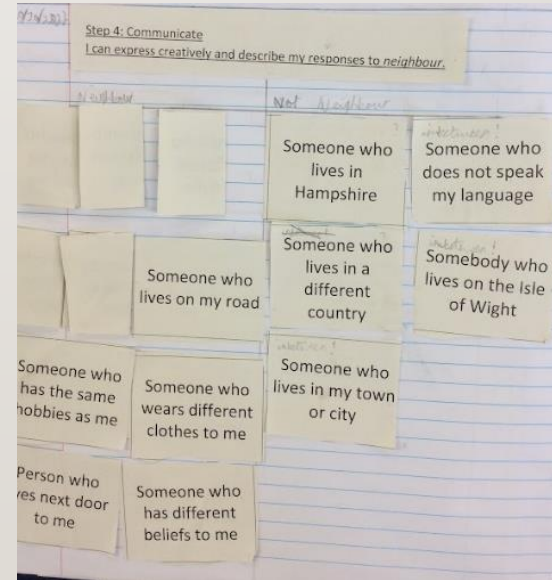 Step 4: Communicate
I can express creatively and describe my responses to neighbour.
Neighbour
Not Neighbour
Someone who
lives in
Hampshire
Someone who
does not speak
my language
Someone who
lives on my road
Someone who
lives in a
different
country
Somebody who
lives on the Isle
of Wight
Someone who
has the same
hobbies as me
Someone who
wears different
clothes to me
Someone who
lives in my town
or city
Person who
next door
to me
Someone who
has different
beliefs to me